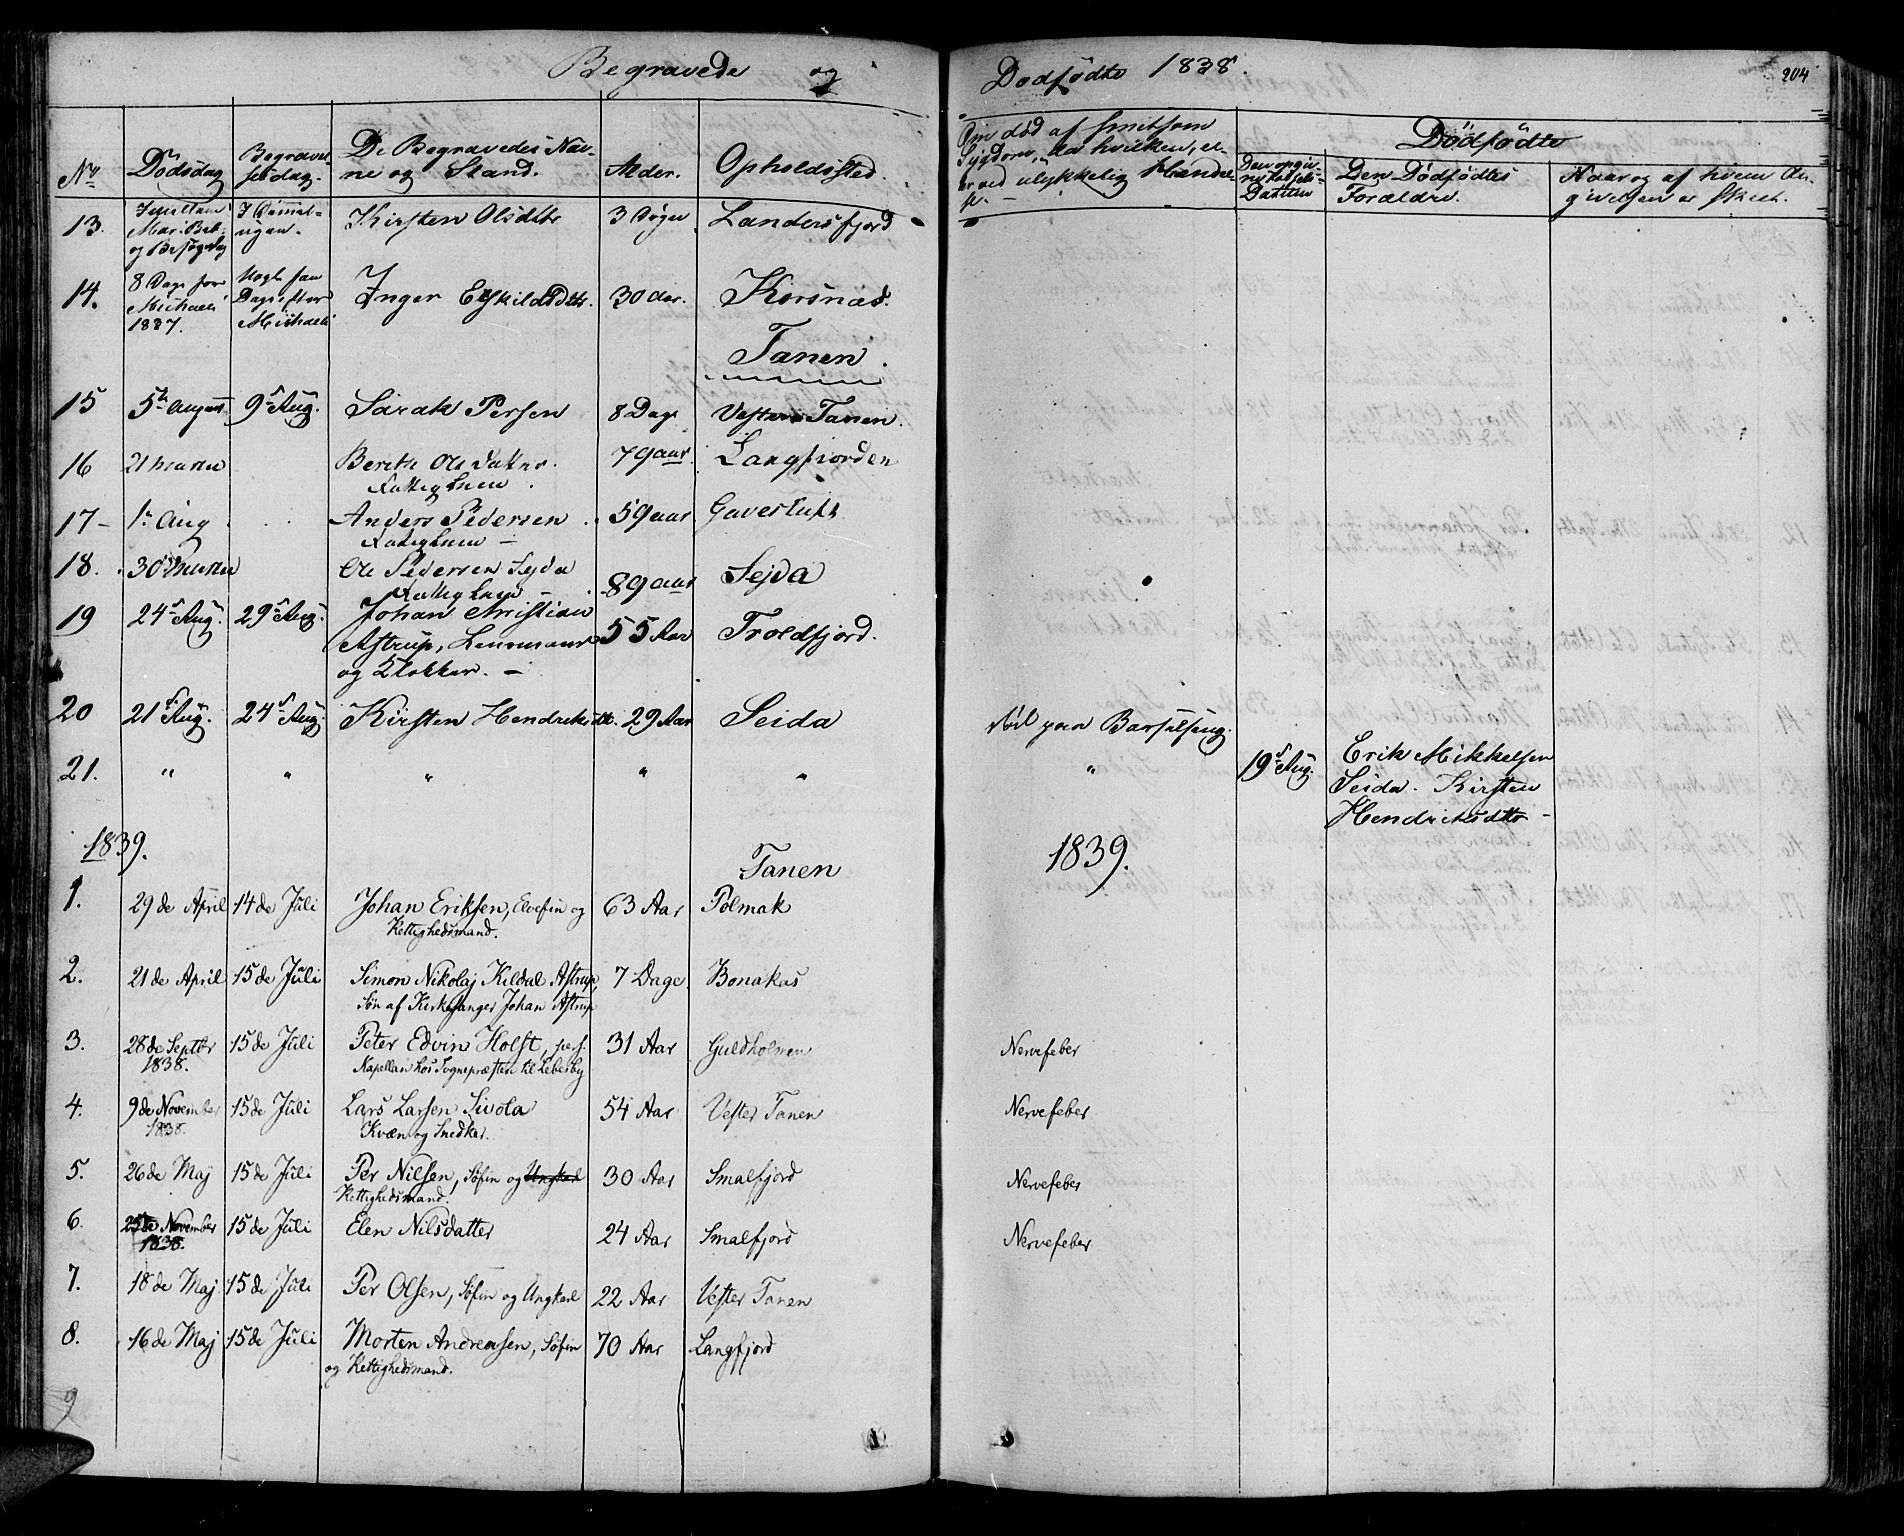 Begravede og Dødfødte 1838.
204
No Dødsdag Begravelsesdag. De Begravedes Navne og Stand. Alder. Opholdssted. Om død af smitsom Sygdom, da hvilken, eller ved ulykkelig Hændelse.
Dødfødte
Den opgivne Fødsels Datum Den Dødfødtes Forældre. Naar og af hvem Angivelsen er skeet.
13. Imellem Mar. Beb. og Besøgdag Kirsten Olsdttr 3 Døgn Landersfjord
14. 8 Dage før Michaeli 1837. Nogle faa Dage efter Michaeli Inger Eskildsdttr. 30 Aar. Korsnæs.
Tanen.
15 5te August 9de Aug. Sarak Persen 8 Dage Vester Tanen.
16 21 Marten Berith Ole Datter. 79 aar. Langfiorden
Fattiglem.
17- 1te Aug. Anders Pedersen 59 aar. Gavesluft
Fattiglem -
18. 30 Marten Ole Pedersen Sejda 89 aar Sejda
Fattiglem -
19 24de Aug. 29de Aug. Johan Christian
Astrup, Lensmann 55 Aar Troldfjord.
og Klokker. -
20 21de Aug. 24de Aug. Kirsten Hendriksdtt. 29 Aar Seida død paa Barselseng.
21. " " " " " " 19de Aug. Erik Mikkelsen
Seida. Kirsten
Hendriksdtter -
1839. Tanen 1839.
1. 29de April 14de Juli Johan Eriksen, Elvefin og 63 Aar Polmak
Rettighedsmand.
2. 21de April 15de Juli Simon Nikolaj Kildal Astrup, 7 Dage Bonakas
Søn af Kirkesanger Johan Astrup
3. 28de Septbr 15de Juli Peter Edvin Holst, pers. 31 Aar Guldholmen Nervefeber
1838. Kapellan hos Sognepræsten til Lebesby
4. 9de November 15de Juli Lars Larsen Sivola 54 Aar Vester Tanen Nervefeber
1838. Kvæn og Snedker.
5. 26de Maj 15de Juli Per Nilsen, Søfin og Ungkarl 30 Aar Smalfjord Nervefeber
Rettighedsmand.
6. 25de November 15de Juli Elen Nilsdatter 24 Aar Smalfjord Nervefeber
1838.
7. 18de Maj 15de Juli Per Olsen, Søfin og Ungkarl 22 Aar Vester Tanen
8. 16de Maj 15de Juli Morten Andreasen, Søfin 70 Aar Langfjord
og Rettighedsmand.
9